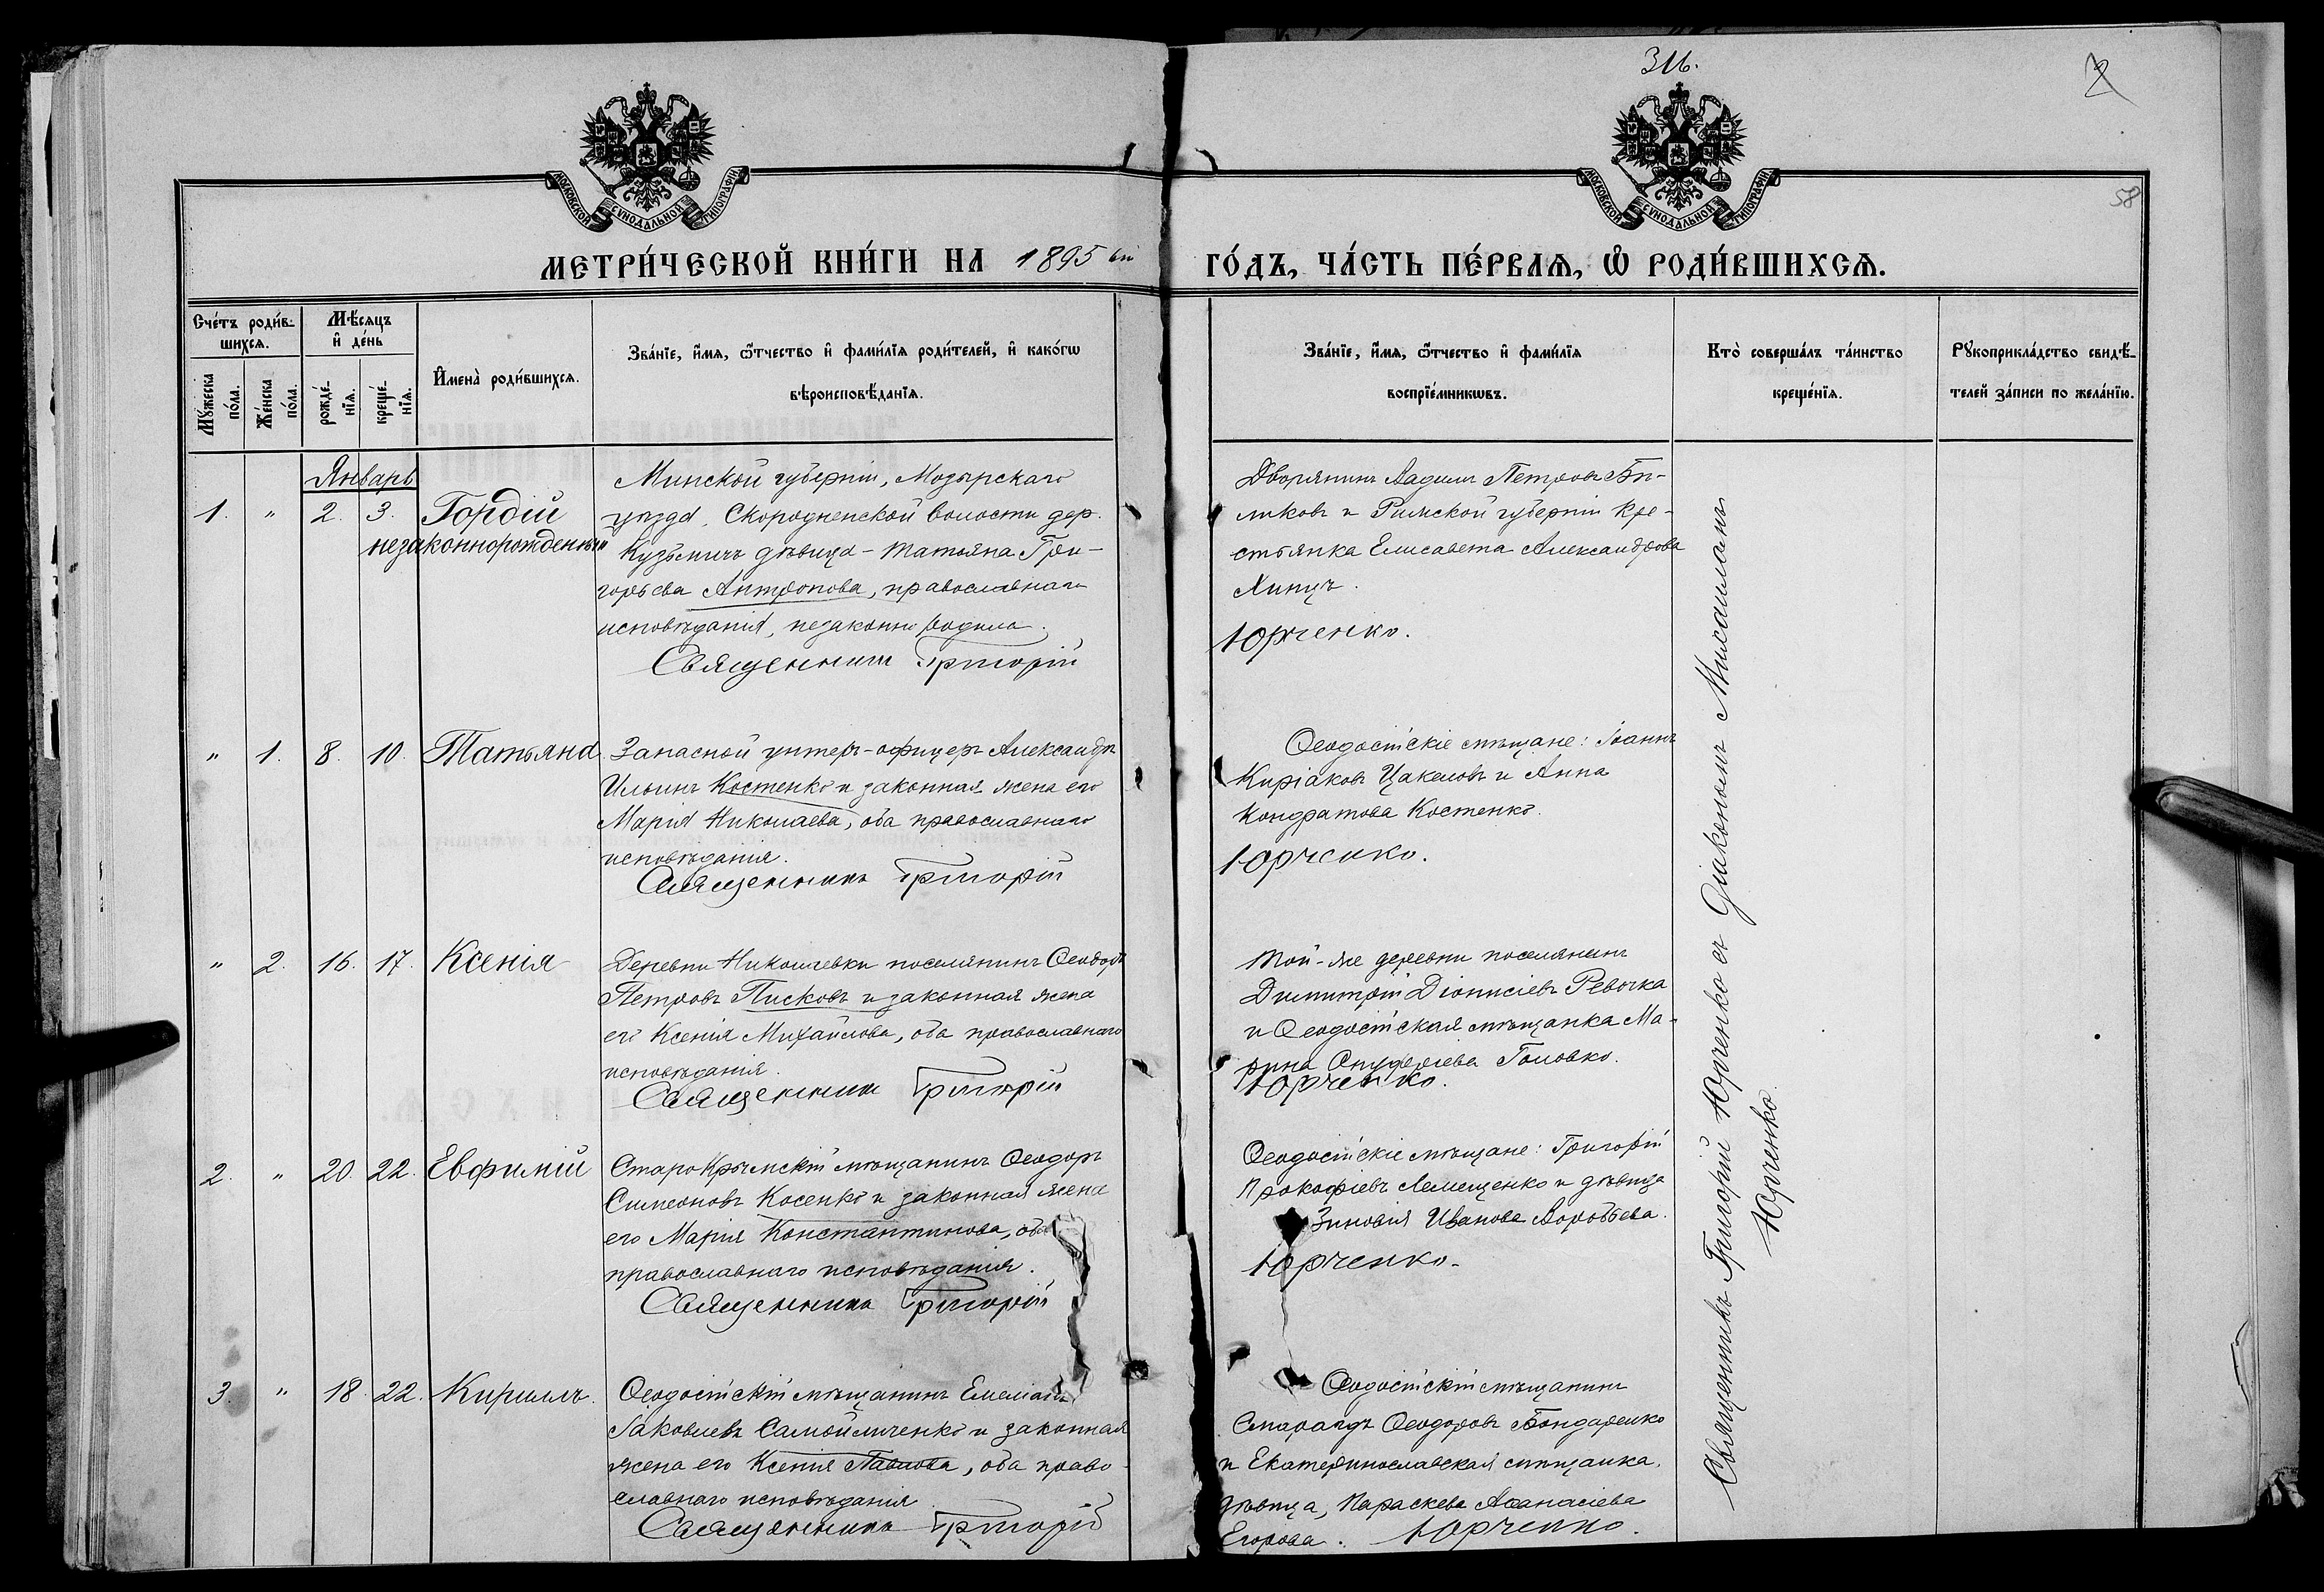 316.
2
58
МОСКОВСКОЙ СѴНОДАЛЬНОЙ ТИПОГРАФІИ
МОСКОВСКОЙ СѴНОДАЛЬНОЙ ТИПОГРАФІИ
МЕТРИ́ЧЕСКОЙ КНИ́ГИ НА 1895 ый
ГО́ДЪ, ЧА́СТЬ ПЕ́РВАѦ, Ѡ҆ РОДИ́ВШИХСѦ.
Сче́тъ роди́в-
шихсѧ.
Мꙋ́жеска
по́ла.
Же́нска
по́ла.
Мѣ́сѧцъ
и҆ де́нь
рожде́-
нїѧ.
креще́-
нїѧ.
И҆мена̀ роди́вшихсѧ.
Зва́нїе, и҆́мѧ, ѻ҆́тчество и҆ фами́лїѧ роди́телей, и҆ како́гѡ
вѣроисповѣ́данїѧ.
Зва́нїе, и҆́мѧ, ѻ҆́тчество и҆ фами́лїѧ
воспрїе́мникѡвъ.
Кто̀ соверша́лъ та́инство
креще́нїѧ.
Рꙋкоприкла́дство свидѣ́-
телей за́писи по жела́нїю.
Январь
1. " 2. 3. Гордій
незаконнорожденный
Минской губерніи, Мозырскаго
уѣзда, Скородненской волости дер.
Кузьмичъ дѣвица - Татьяна Гри-
горьева Антропова, православнаго
исповѣданія, незаконно родила.
Священникъ Григорій
Дворянинъ Вадимъ Петровъ Би-
ликовъ и Рижской губерніи кре-
стьянка Елисавета Александрова
Хинцъ.
Юрченко.
" 1. 8. 10. Татьяна
Запасной унтеръ-офицеръ Александръ
Ильинъ Костенко и законная жена его
Марія Николаева, оба православнаго
исповѣданія.
Священникъ Григорій
Ѳеодосійскіе мѣщане: Іоаннъ
Киріаковъ Цакеловъ и Анна
Кондратова Костенко.
Юрченко.
" 2. 16. 17. Ксенія
Деревни Николаевки поселянинъ Ѳеодоръ
Петровъ Писковъ и законная жена
его Ксенія Михайлова, оба православнаго
исповѣданія.
Священникъ Григорій
Той-же деревни поселянинъ
Димитрій Діонисіевъ Ревочка
и Ѳеодосійская мѣщанка Ма-
рина Головко.
Юрченко.
2. " 20. 22. Евфимій
СтароКрымскій мѣщанинъ Ѳеодоръ
Симеоновъ Косенко и законная жена
его Марія Константинова, оба
православнаго исповѣданія.
Священникъ Григорій
Ѳеодосійскіе мѣщане: Григорій
Прокофіевъ Лемещенко и дѣвица
Зиновія Иванова Воробьева.
Юрченко.
3. " 18. 22. Кириллъ.
Ѳеодосійскій мѣщанинъ Емеліанъ
Іаковлевъ Самойличенко и законная
жена его Ксенія Павлова, оба право-
славнаго исповѣданія
Священникъ Григорій
Ѳеодосійскій мѣщанинъ
Смарагдъ Ѳеодоровъ Бондаренко
и Екатеринославская мѣщанка,
дѣвица, Параскева Аѳанасіева
Егорова. Юрченко.
Священникъ Григорій Юрченко съ діакономъ Михаиломъ
Юрченко.